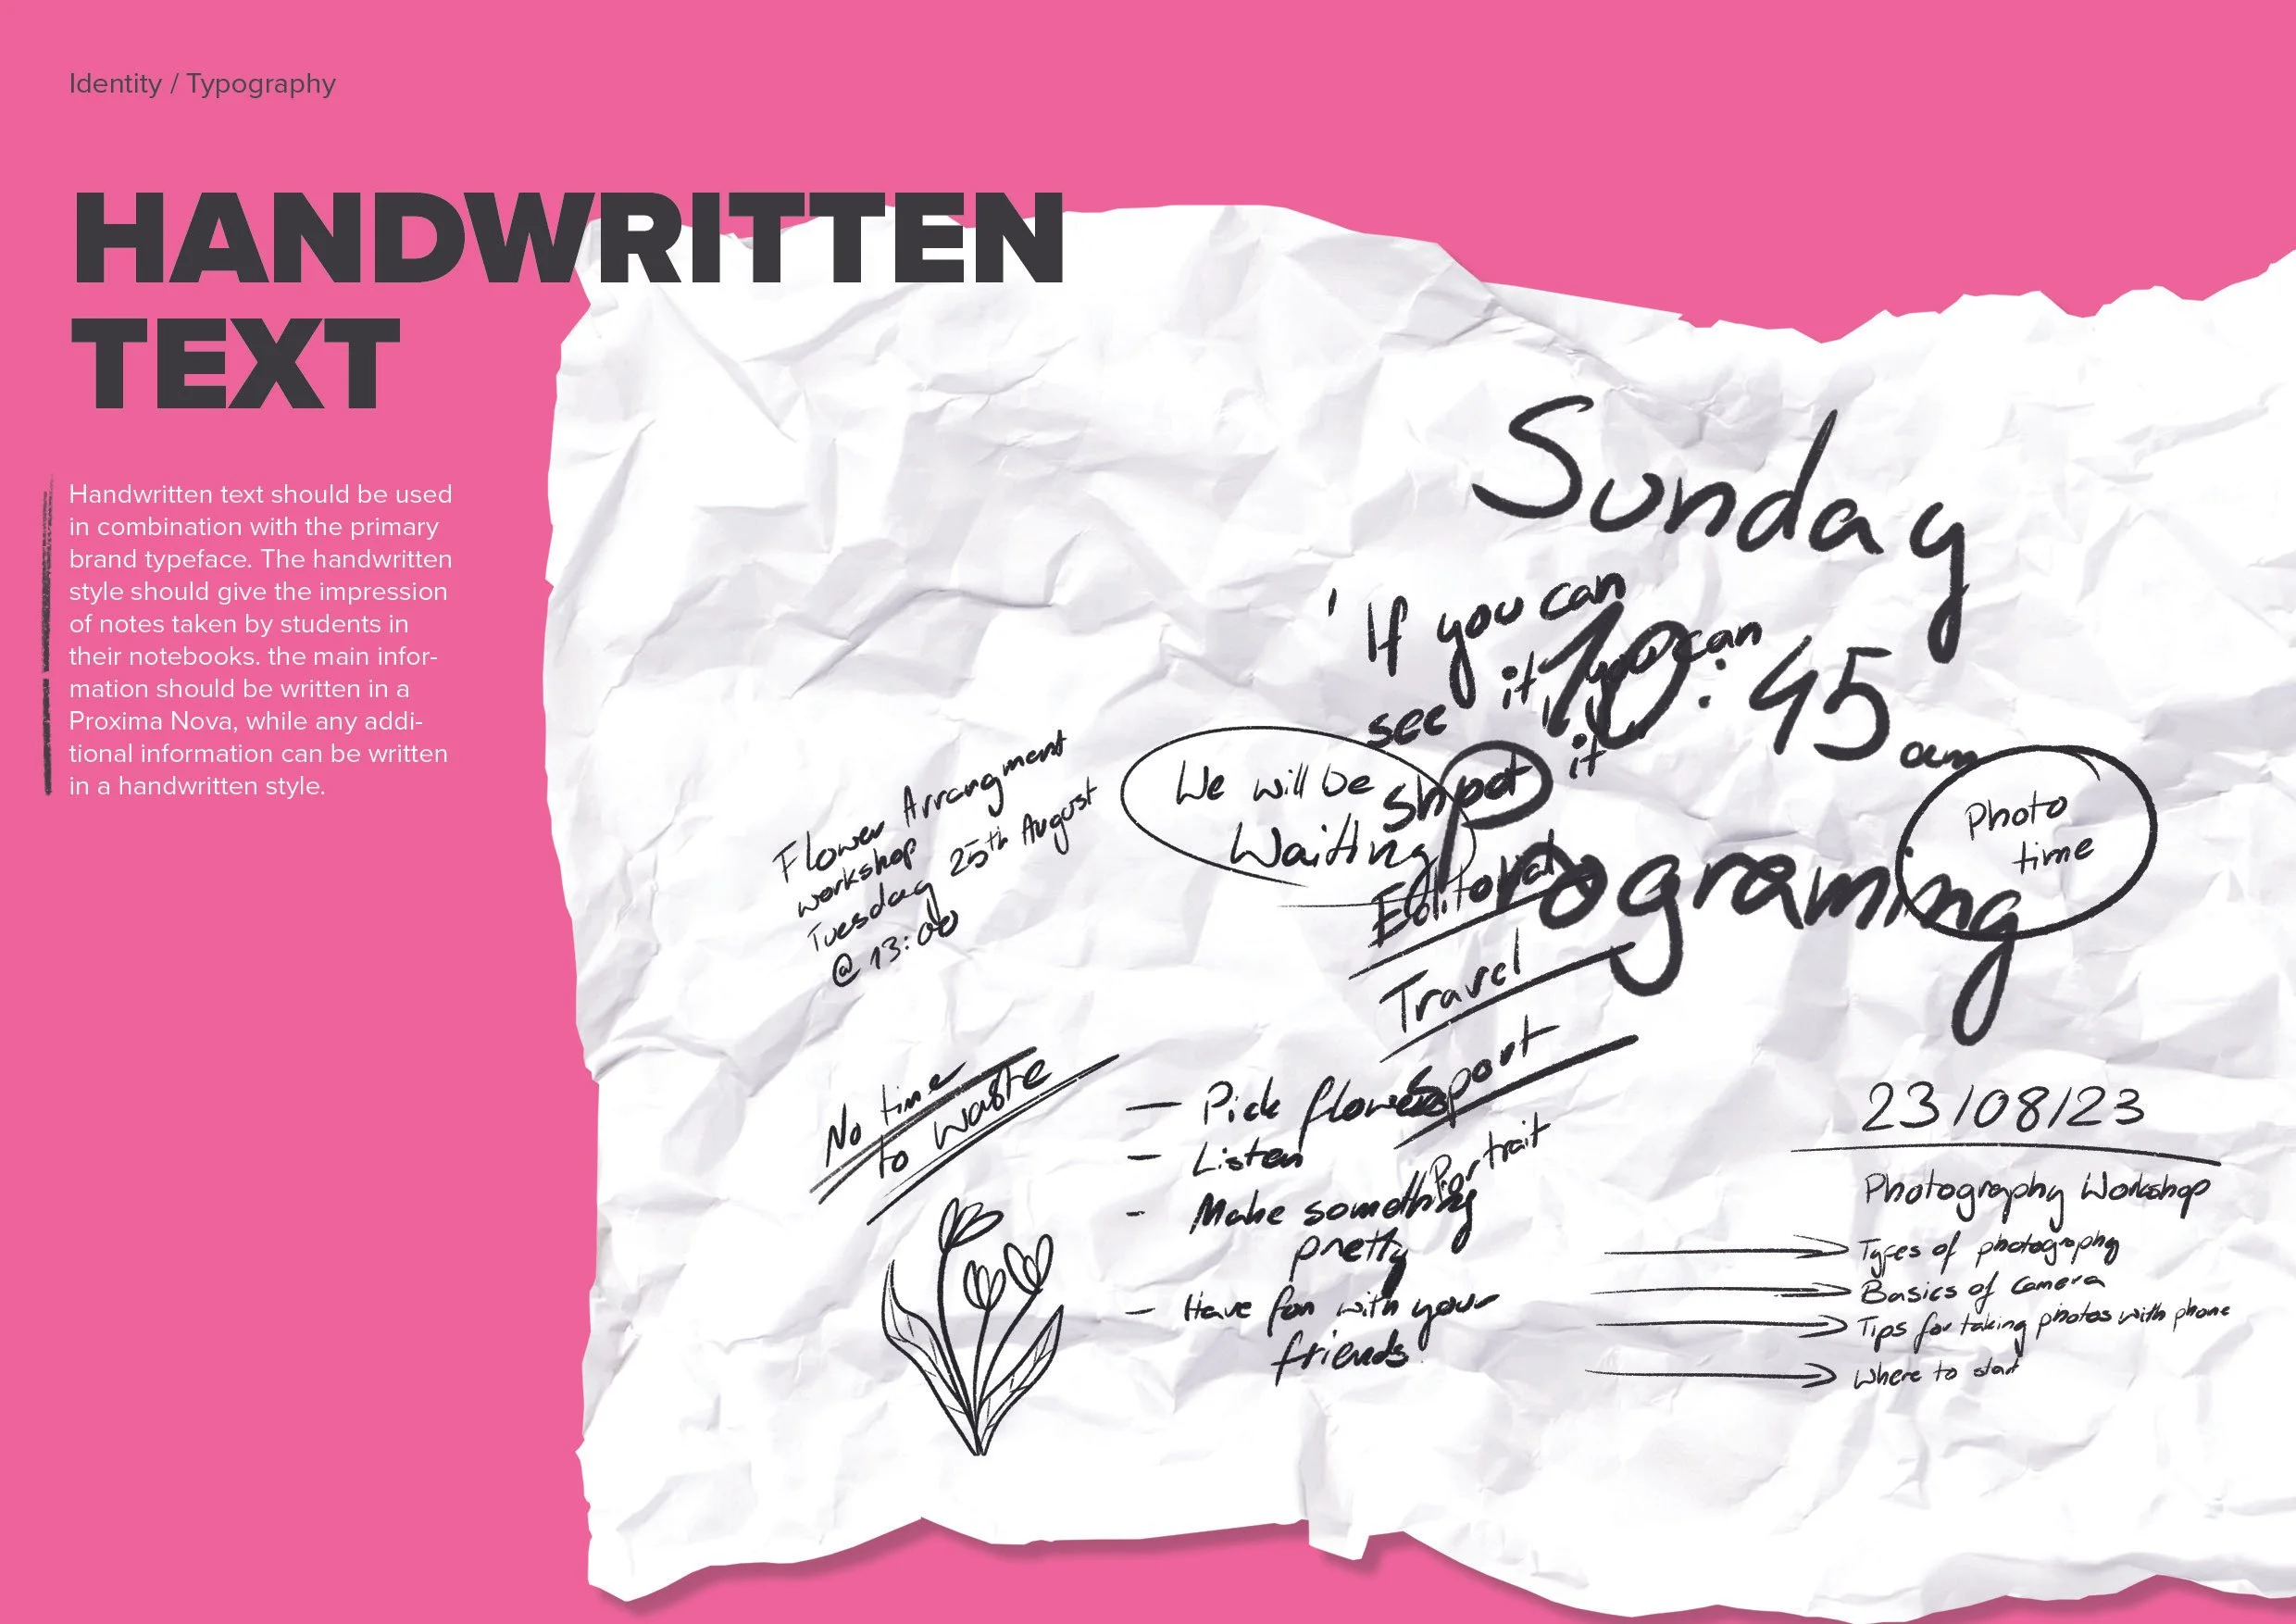 Identity / Typography
HANDWRITTEN
TEXT
Handwritten text should be used
in combination with the primary
brand typeface. The handwritten
style should give the impression
of notes taken by students in
their notebooks. the main infor-
mation should be written in a
Proxima Nova, while any addi-
tional information can be written
in a handwritten style.
Sunday
'If you can
see it, you can
shoot it
10:45 am
We will be
Waiting
Photo
time
Programing
Flower Arrangment
workshop
Tuesday 25th August
@ 13:00
Editorial
Travel
Sport
Portrait
No time
to waste
— Pick flowers
- Listen
- Make something
pretty
- Have fun with your
friends
23/08/23
Photography Workshop
Types of photography
Basics of camera
Tips for taking photos with phone
Where to start